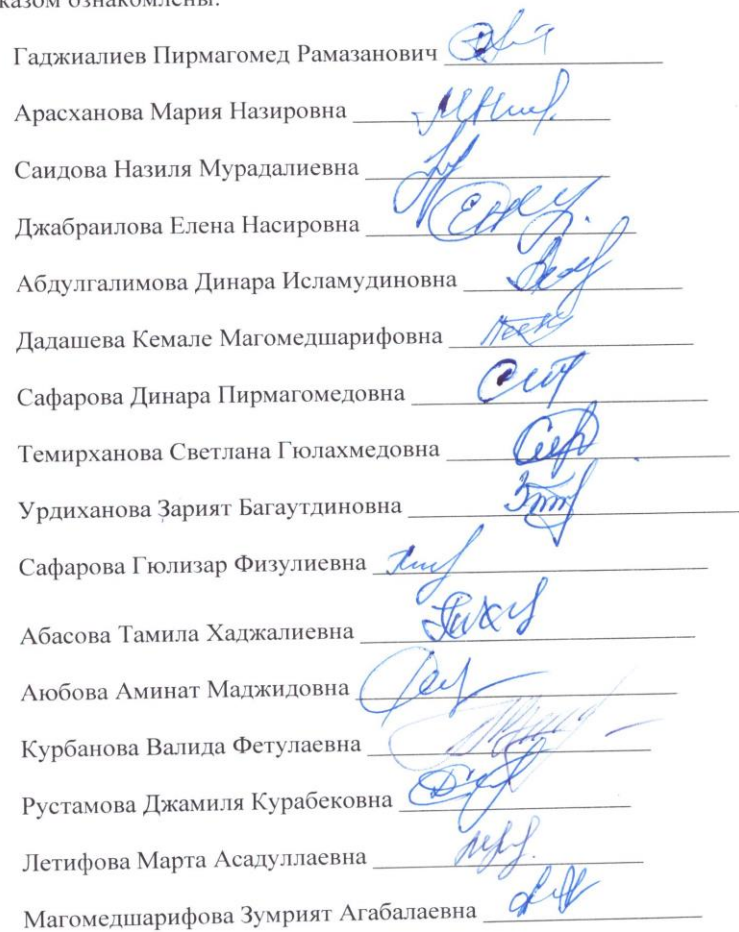 казом ознакомлены:
Гаджиалиев Пирмагомед Рамазанович
Арасханова Мария Назировна
Саидова Назиля Мурадалиевна
Джабраилова Елена Насировна
Абдулгалимова Динара Исламудиновна
Дадашева Кемале Магомедшарифовна
Сафарова Динара Пирмагомедовна
Темирханова Светлана Гюлахмедовна
Урдиханова Зарият Багаутдиновна
Сафарова Гюлизар Физулиевна
Абасова Тамила Хаджалиевна
Аюбова Аминат Маджидовна
Курбанова Валида Фетулаевна
Рустамова Джамиля Курабековна
Летифова Марта Асадуллаевна
Магомедшарифова Зумрият Агабалаевна